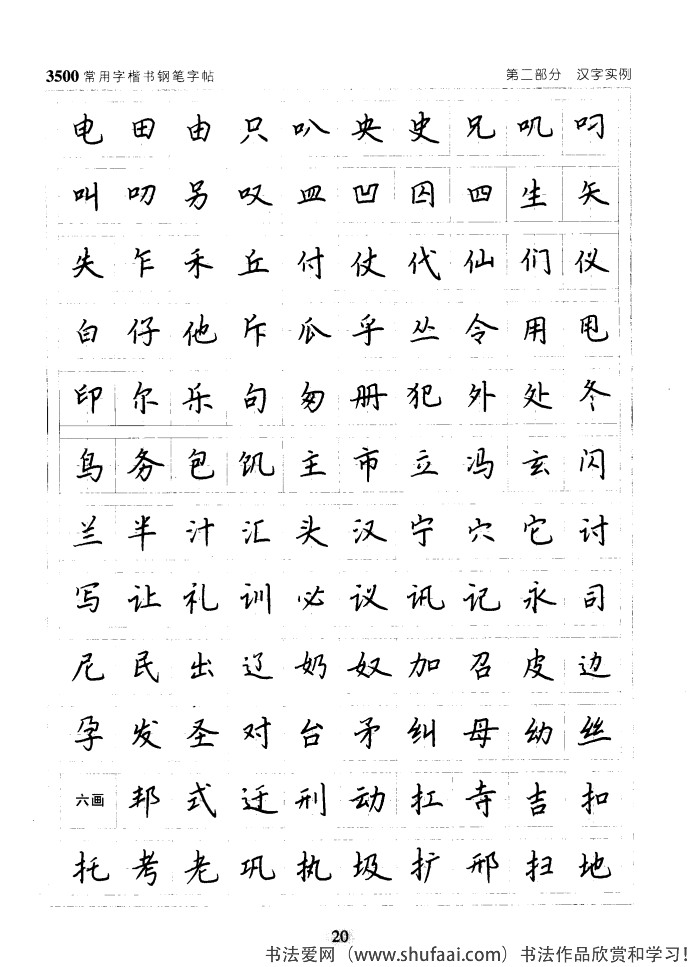 3500常用字楷书钢笔字帖 第二部分 汉字实例
电田由只叭央史兄叽叼
叫叨另叹皿凹囚四生矢
失乍禾丘付仗代仙们仪
白仔他斥瓜乎丛令用甩
印尔乐句匆册犯外处冬
鸟务包饥主市立冯玄闪
兰半汁汇头汉宁穴它讨
写让礼训必议讯记永司
尼民出辽奶奴加召皮边
孕发圣对台矛纠母幼丝
六画邦式迁刑动扛寺吉扣
托考老巩执圾扩邢扫地
20
书法爱网（www.shufaai.com）书法作品欣赏和学习！